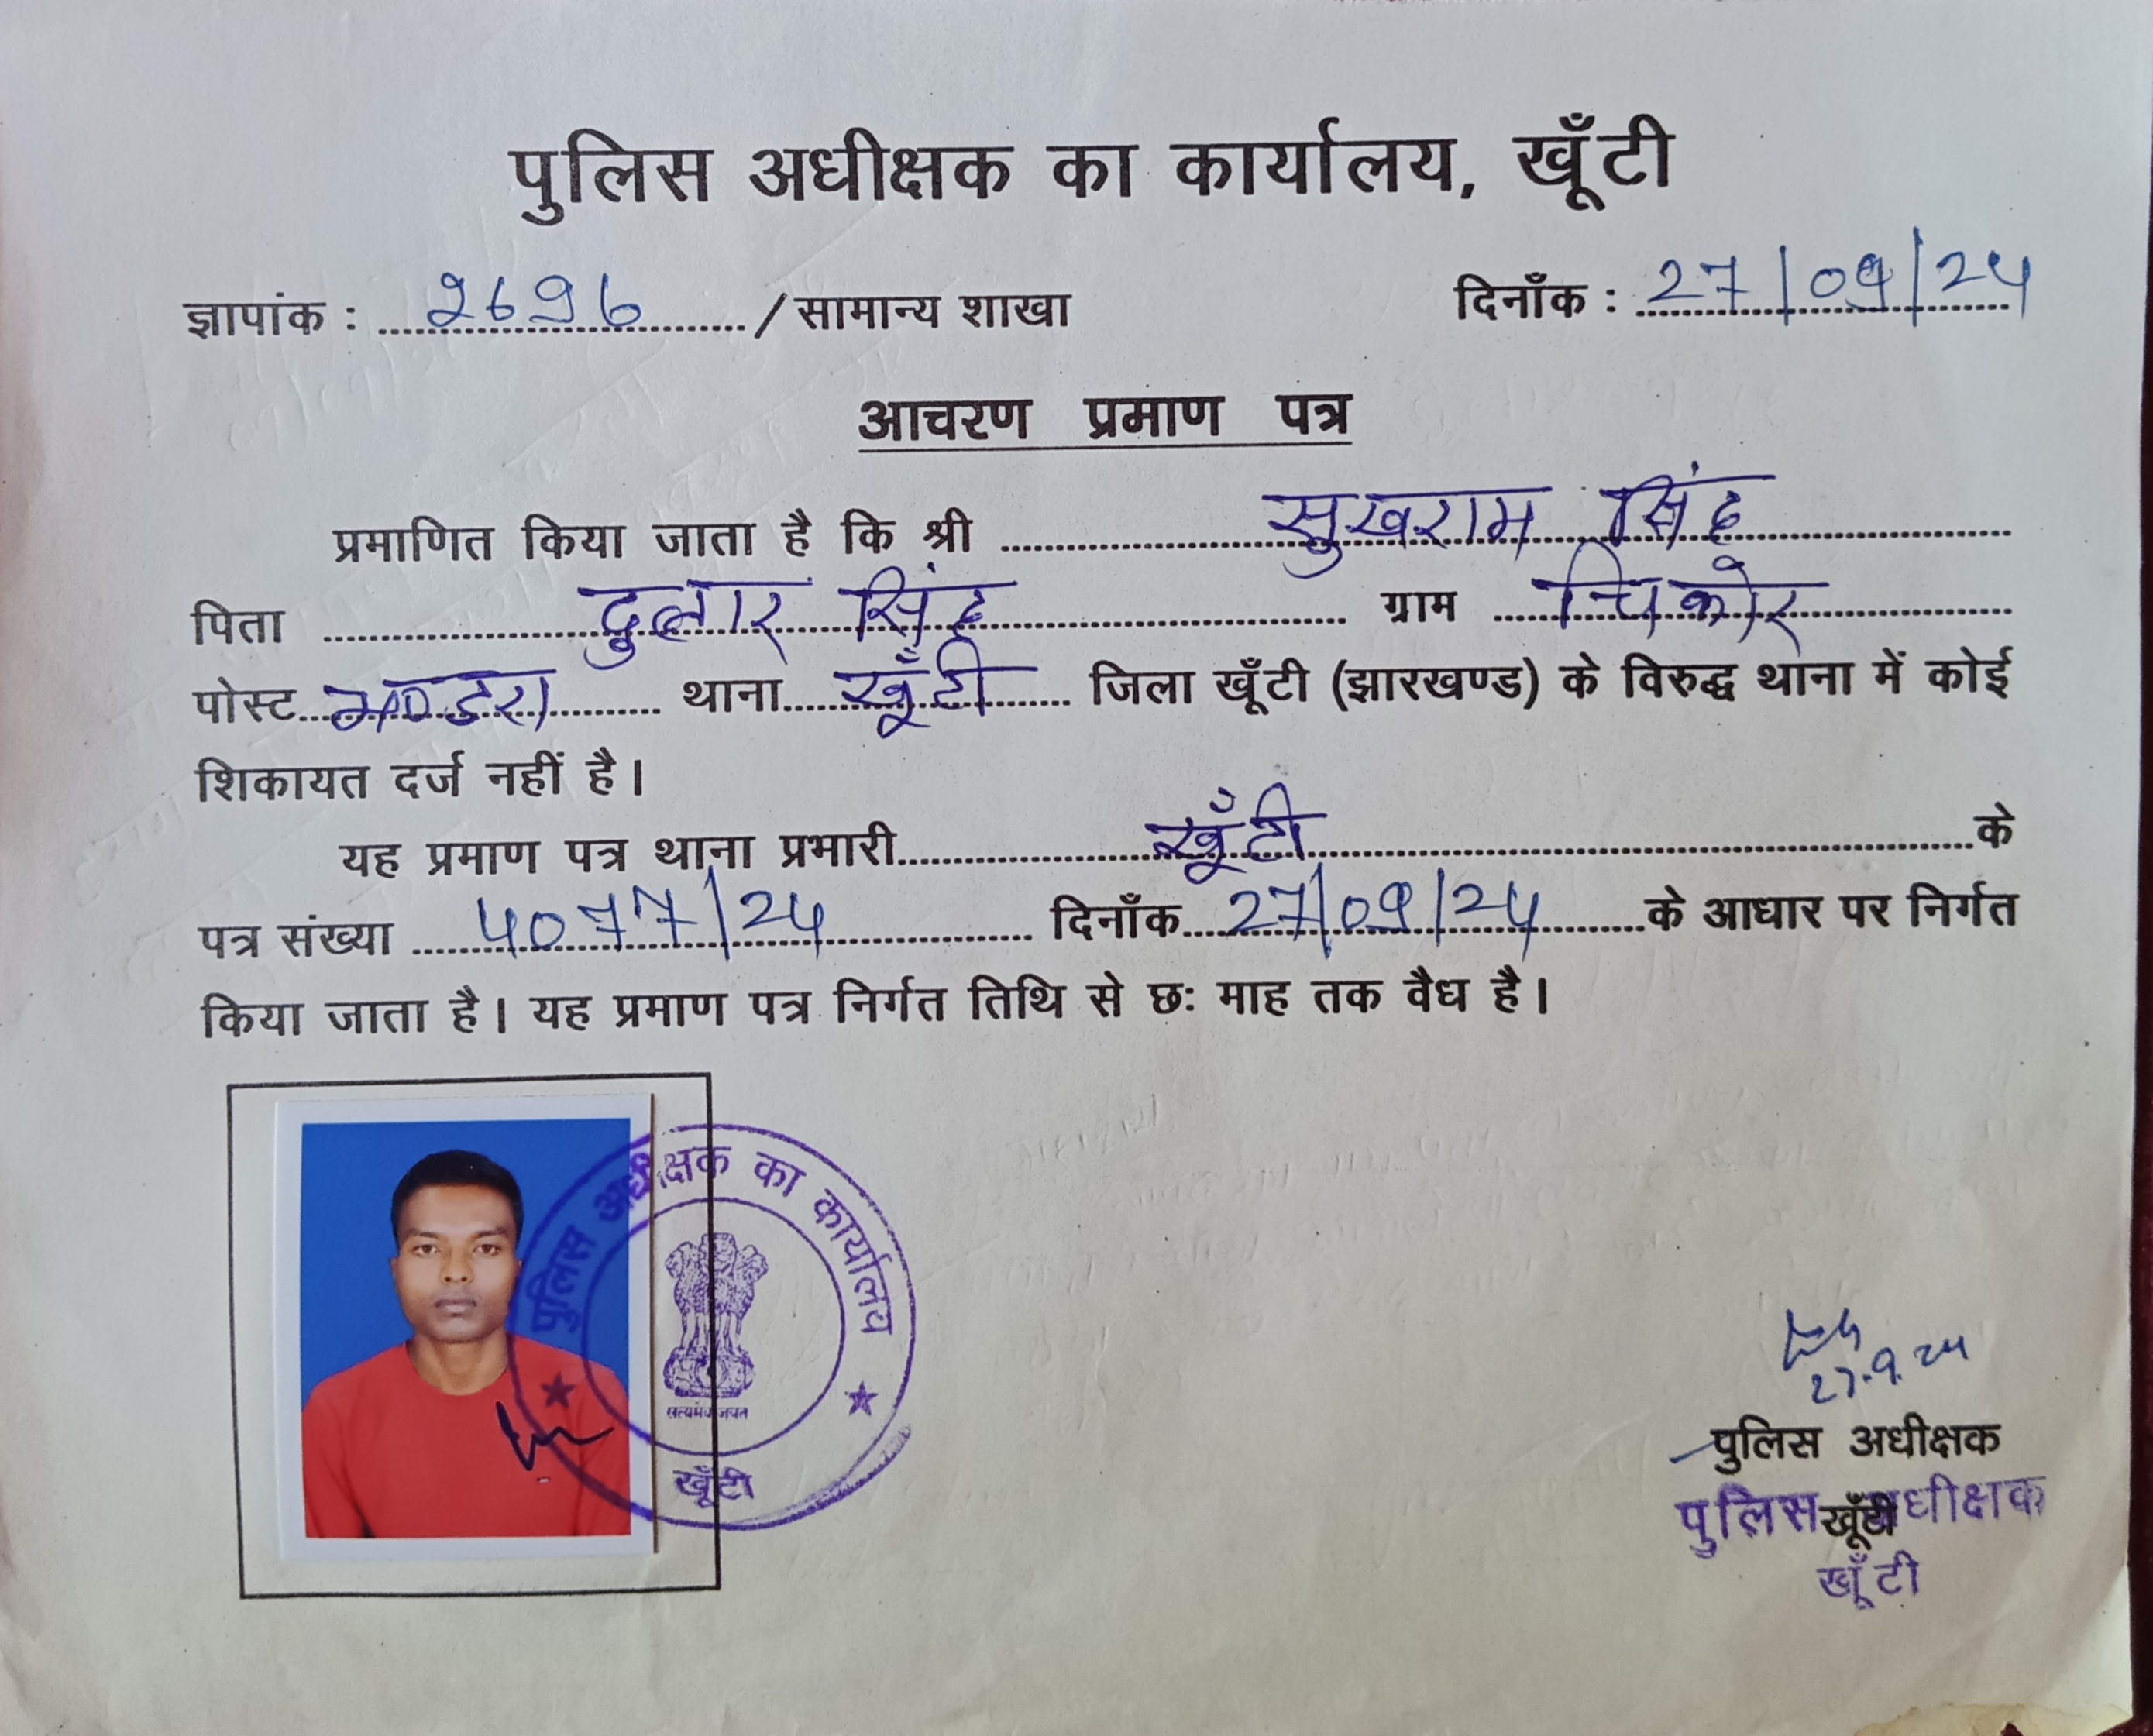 पुलिस अधीक्षक का कार्यालय, खूँटी
ज्ञापांक : 2696 / सामान्य शाखा दिनाँक : 27/09/24
आचरण प्रमाण पत्र
प्रमाणित किया जाता है कि श्री सुखराम सिंह
पिता दुलार सिंह ग्राम चिकोर
पोस्ट भण्डरा थाना खूँटी जिला खूँटी (झारखण्ड) के विरुद्ध थाना में कोई
शिकायत दर्ज नहीं है।
यह प्रमाण पत्र थाना प्रभारी खूँटी के
पत्र संख्या 4077/24 दिनाँक 27/09/24 के आधार पर निर्गत
किया जाता है। यह प्रमाण पत्र निर्गत तिथि से छः माह तक वैध है।
पुलिस अधीक्षक का कार्यालय
सत्यमेव जयते
खूँटी
27.9.24
पुलिस अधीक्षक
खूँटी
पुलिस अधीक्षक
खूँटी